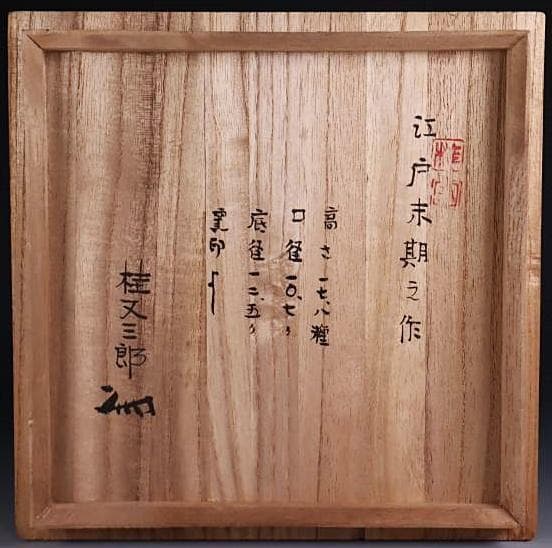 江戸末期之作
高さ 一七、八糎
口径 一〇、七〃
底径 一二、五〃
窯印
桂又三郎